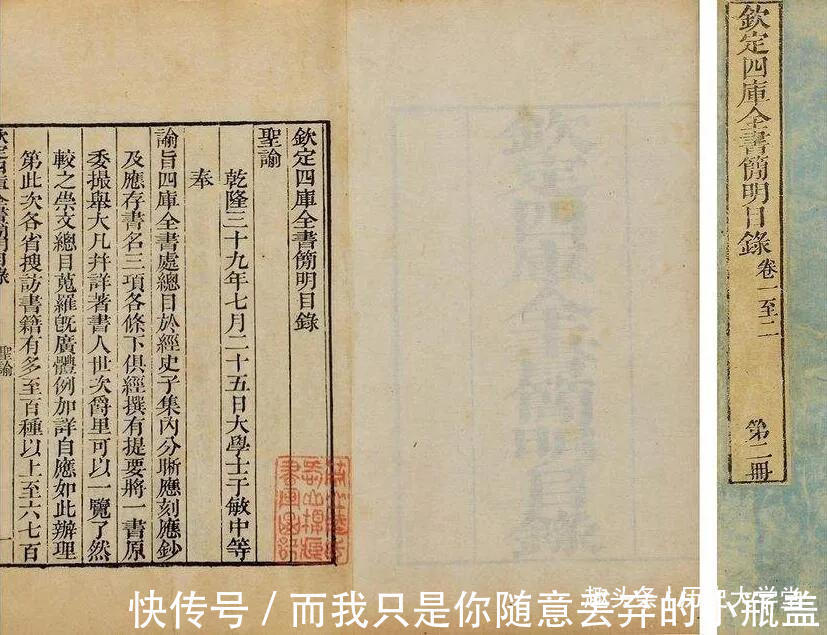 欽定四庫全書簡明目錄
聖諭
乾隆三十九年七月二十五日大學士于敏中等
奉
諭旨四庫全書處總目於經史子集內分晰應刻應鈔
及應存書名三項各條下俱經撰有提要將一書原
委撮舉大凡并詳著書人世次爵里可以一覽了然
較之崇文總目蒐羅旣廣體例加詳自應如此辦理
第此次各省搜訪書籍有多至百種以上至六七百
欽定四庫全書簡明目錄
聖諭
一
欽定四庫全書簡明目錄
欽定四庫全書簡明目錄 卷一至二 第一冊
快传号 / 而我只是你随意丢弃的小瓶盖